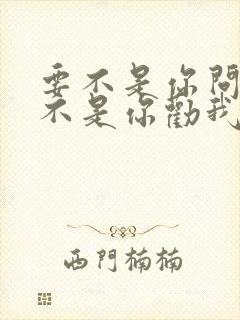 要不是你問
不是你勸我
西門楠楠